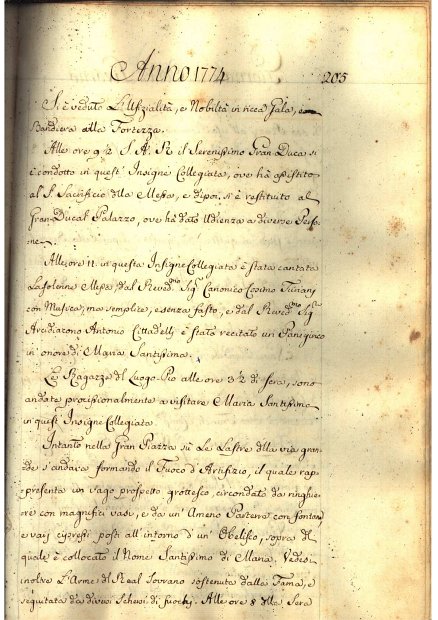 Anno 1774 205
Si è veduto L'Ufizialità, e Nobiltà in ricca Gala, e
Bandiera alla Fortezza.
Alle ore 9½ S. A: R: il Serenissimo Gran Duca si
è condotto in quest' Insigne Collegiata, ove ha assistito
al S. Sacrifizio della Messa, e dipoi si è restituito al
Gran Ducal Palazzo, ove ha dato Udienza a diverse Perso-
ne.
Alle ore 11. in questa Insigne Collegiata è stata cantata
La solenne Messa, dal Revedmo Sigr Canonico Cosimo
con Musica, ma semplice, e senza fasto, e dal Revedmo Sigr
Arcidiacono Antonio Cittadelli è stato recitato un Panigirico
in onore di Maria Santissima.
Le Ragazze del Luogo Pio alle ore 3½ di sera, sono
andate procissionalmente a visitare Maria Santissima
in quest' Insigne Collegiata
Intanto nella Gran Piazza sù Le Lastre della via gran-
de s'andava formando il Fuoco d'Artifizio, il quale rap-
presenta un vago prospetto grottesco, circondato da ringhie-
re con magnifici vasi, e da un' Ameno Parterra con fontane
e varj cipressi posti all' intorno d' un' Obelisco, sopra del
quale è collocato il Nome Santissimo di Maria. Vedesi
inoltre L'Arme del Real Sovrano sostenuta dalla Fama, e
seguitata da diversi Scherzi di fuochi. Alle ore 8 della Sera